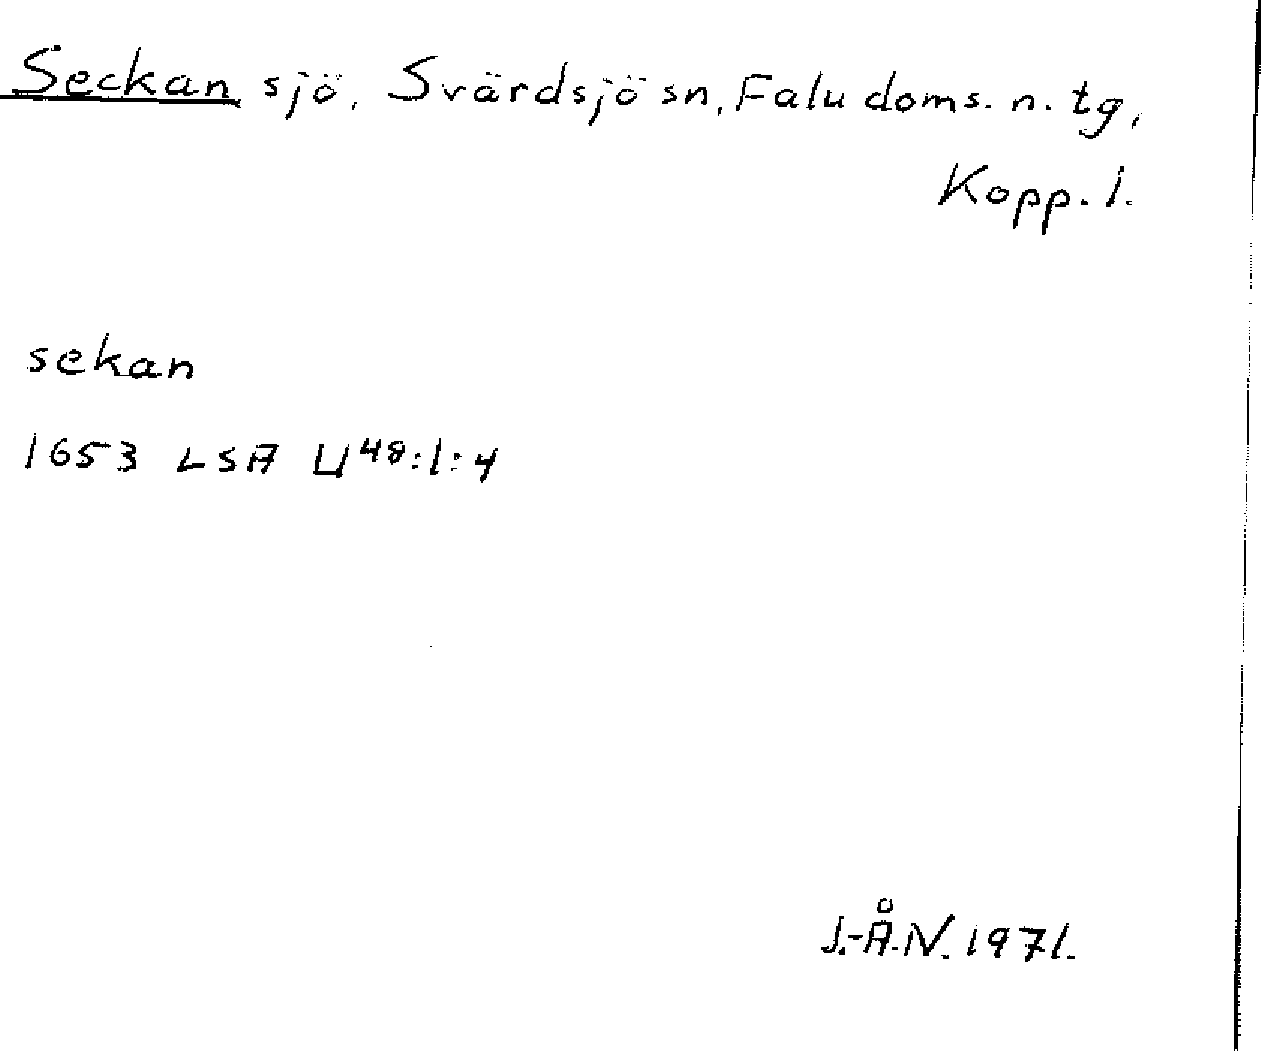 Seckan sjö, Svärdsjö sn, Falu doms. n. tg,
Kopp. l.
sekan
1653 LSA U48:1:4
J.-Å.N. 1971.